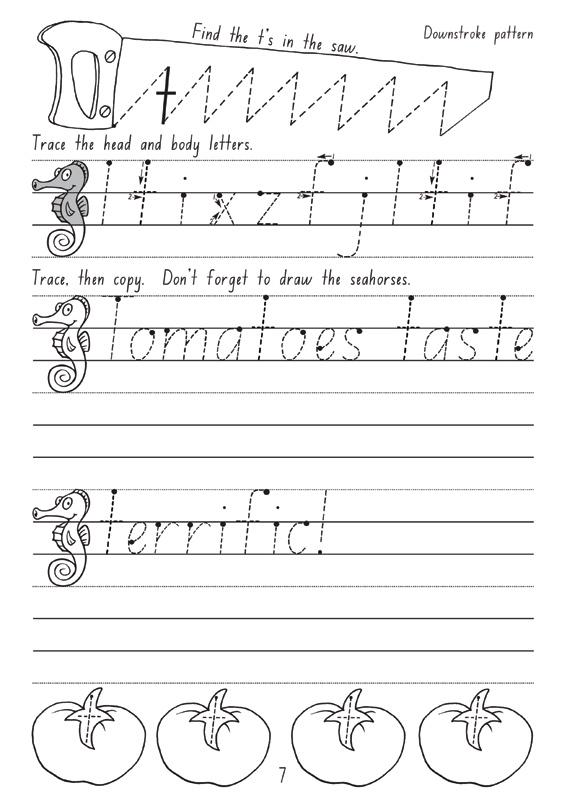 Find the t's in the saw.
Downstroke pattern
t
Trace the head and body letters.
l t i x z f j l t i f
Trace, then copy. Don't forget to draw the seahorses.
Tomatoes taste
terrific!
7